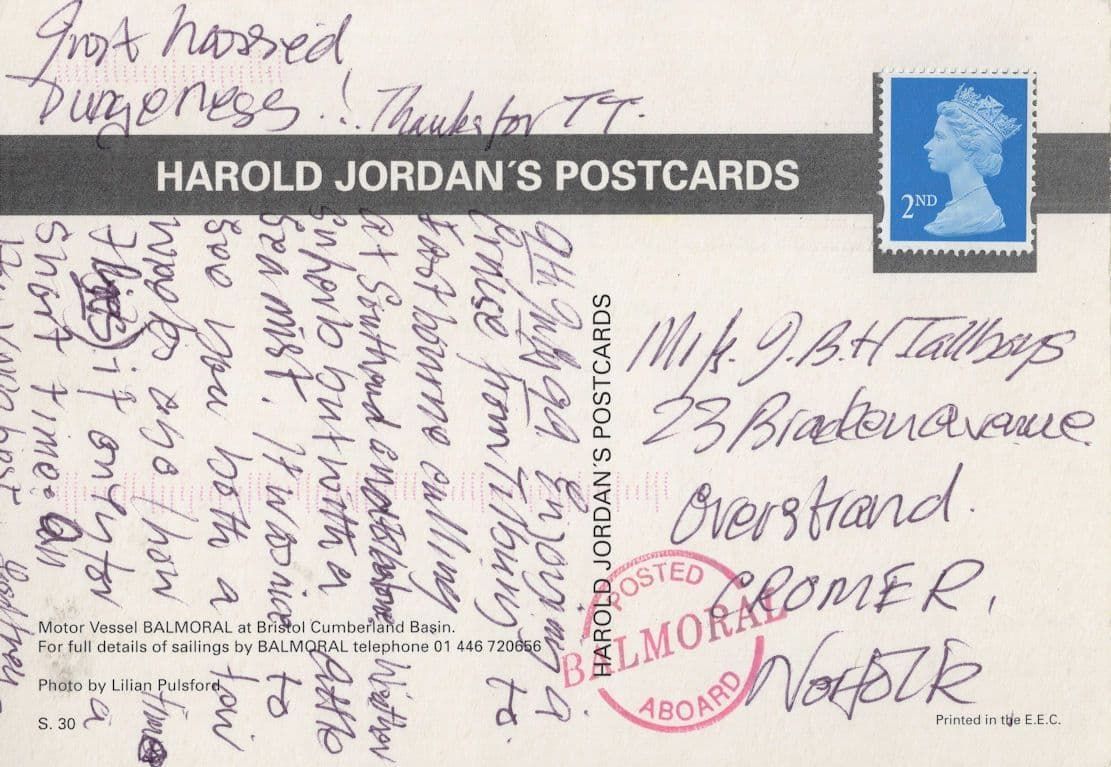 Just
Dungeness! Thanks for TT.
HAROLD JORDAN'S POSTCARDS
2ND
9th July 99 Enjoying a
Cruise from Tilbury to
Eastbourne calling
at Southend
superb but with a little
Sea mist. It was nice to
See you both a few
weeks ago (how time
flies) if only for a
short time. All
HAROLD JORDAN'S POSTCARDS
Mr/s. J.B.H Tallboys
23 Braden avenue
Overstrand.
CROMER,
Norfolk
POSTED
BALMORAL
ABOARD
Motor Vessel BALMORAL at Bristol Cumberland Basin.
For full details of sailings by BALMORAL telephone 01 446 720656
Photo by Lilian Pulsford
S. 30
Printed in the E.E.C.